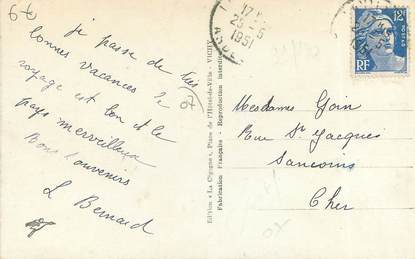 je passe de très
bonnes vacances le
voyage est bon et le
pays merveilleux
Bons Souvenirs
L Bernard
Edition « La Cigogne », Place de l'Hôtel-de-Ville - VICHY
Fabrication Française - Reproduction interdite
17
25-5
1951
12F
RF
Mesdames Goin
Rue St Jacques
Sancoins
Cher